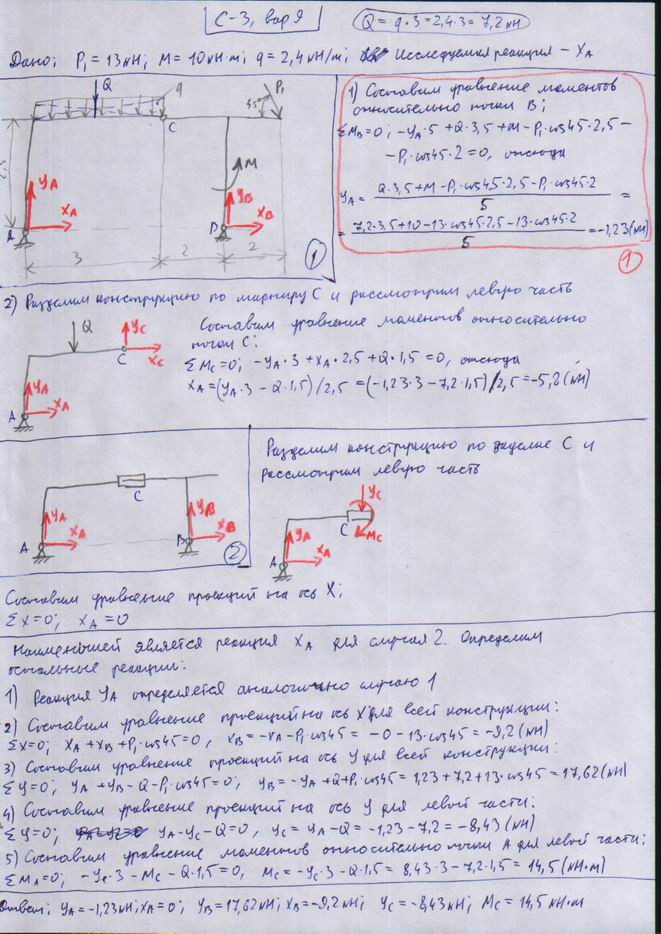 С-3, вар 9
Q = q·3 = 2,4·3 = 7,2 кН
Дано: P₁ = 13 кН; M = 10 кН·м; q = 2,4 кН/м; Исследуемая реакция – XA
Q
q
P₁
45°
C
2,5
M
YA
XA
YB
XB
A
B
3
2
2
1
1) Составим уравнение моментов
относительно точки B:
ΣMB=0; -YA·5 + Q·3,5 + M - P₁·cos45·2,5 -
- P₁·cos45·2 = 0, отсюда
YA = (Q·3,5 + M - P₁·cos45·2,5 - P₁·cos45·2) / 5 =
= (7,2·3,5 + 10 - 13·cos45·2,5 - 13·cos45·2) / 5 = -1,23 (кН)
1
2) Разделим конструкцию по шарниру C и рассмотрим левую часть
Q
YC
C
XC
YA
XA
A
Составим уравнение моментов относительно
точки C:
ΣMC=0; -YA·3 + XA·2,5 + Q·1,5 = 0, отсюда
XA = (YA·3 - Q·1,5)/2,5 = (-1,23·3 - 7,2·1,5)/2,5 = -5,8 (кН)
C
YA
XA
A
YB
XB
B
2
Разделим конструкцию по заделке C и
рассмотрим левую часть
YC
C
MC
YA
XA
A
Составим уравнение проекций на ось X:
ΣX=0; XA=0
Наименьшей является реакция XA для случая 2. Определим
остальные реакции:
1) Реакция YA определяется аналогично случаю 1
2) Составим уравнение проекций на ось X для всей конструкции:
ΣX=0; XA + XB + P₁·cos45 = 0, XB = -XA - P₁·cos45 = -0 - 13·cos45 = -9,2 (кН)
3) Составим уравнение проекций на ось Y для всей конструкции:
ΣY=0; YA + YB - Q - P₁·cos45 = 0; YB = -YA + Q + P₁·cos45 = 1,23 + 7,2 + 13·cos45 = 17,62 (кН)
4) Составим уравнение проекций на ось Y для левой части:
ΣY=0; YA - YC - Q = 0, YC = YA - Q = -1,23 - 7,2 = -8,43 (кН)
5) Составим уравнение моментов относительно точки A для левой части:
ΣMA=0; -YC·3 - MC - Q·1,5 = 0, MC = -YC·3 - Q·1,5 = 8,43·3 - 7,2·1,5 = 14,5 (кН·м)
Ответ: YA = -1,23 кН; XA = 0; YB = 17,62 кН; XB = -9,2 кН; YC = -8,43 кН; MC = 14,5 кН·м